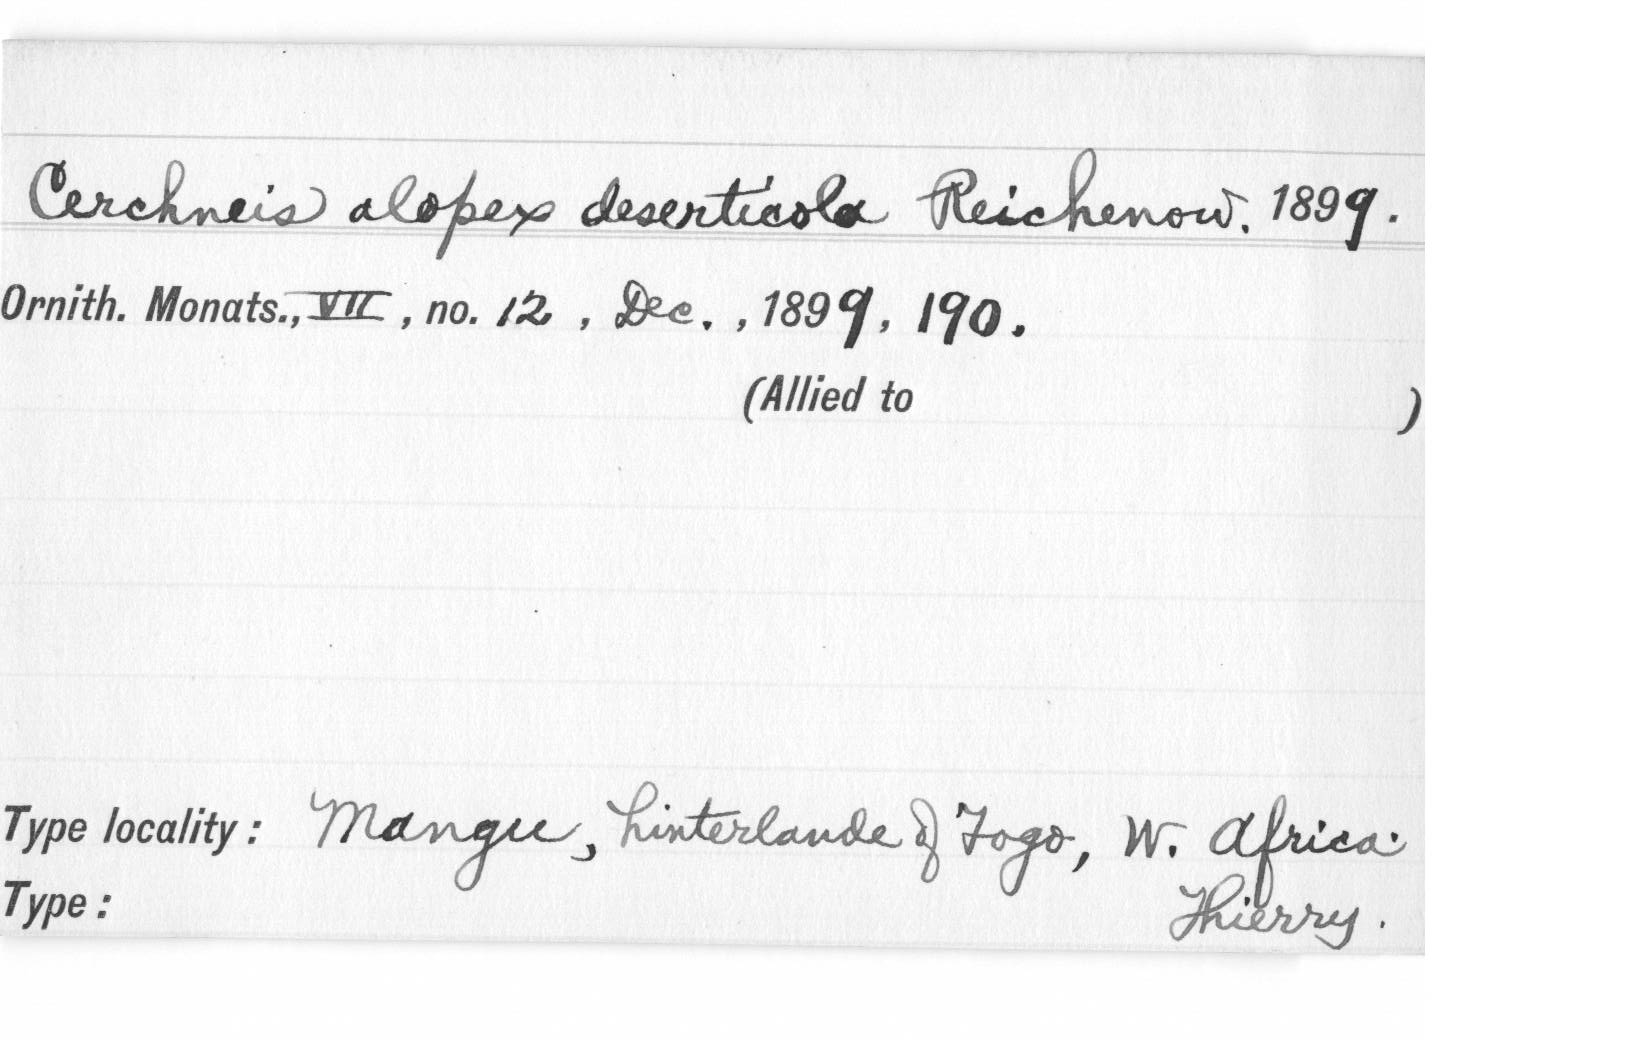 Cerchneis alopex deserticola Reichenow. 1899.
Ornith. Monats., VII, no. 12, Dec., 1899, 190.
(Allied to )
Type locality: Mangu, hinterlande of Togo, W. Africa.
Type: Thierry.